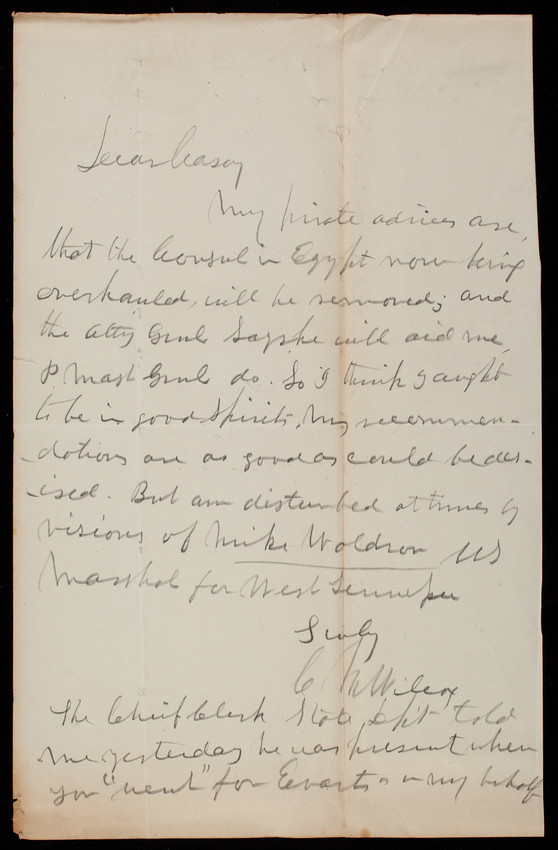 Dear Casey
My private advices are,
that the Consul in Egypt now being
overhauled, will be removed; and
the Atty Genl says he will aid me,
P. Mast Genl do. So I think I aught
to be in good spirits, My recommen-
-dations are as good as could be des-
-ired. But am disturbed at times by
visions of Mike Woldron US
Marshal for West Tennessee
Sincly
C M Wilcox
The Chief Clerk State Dept told
me yesterday he was present when
you "went" for Evarts in my behalf